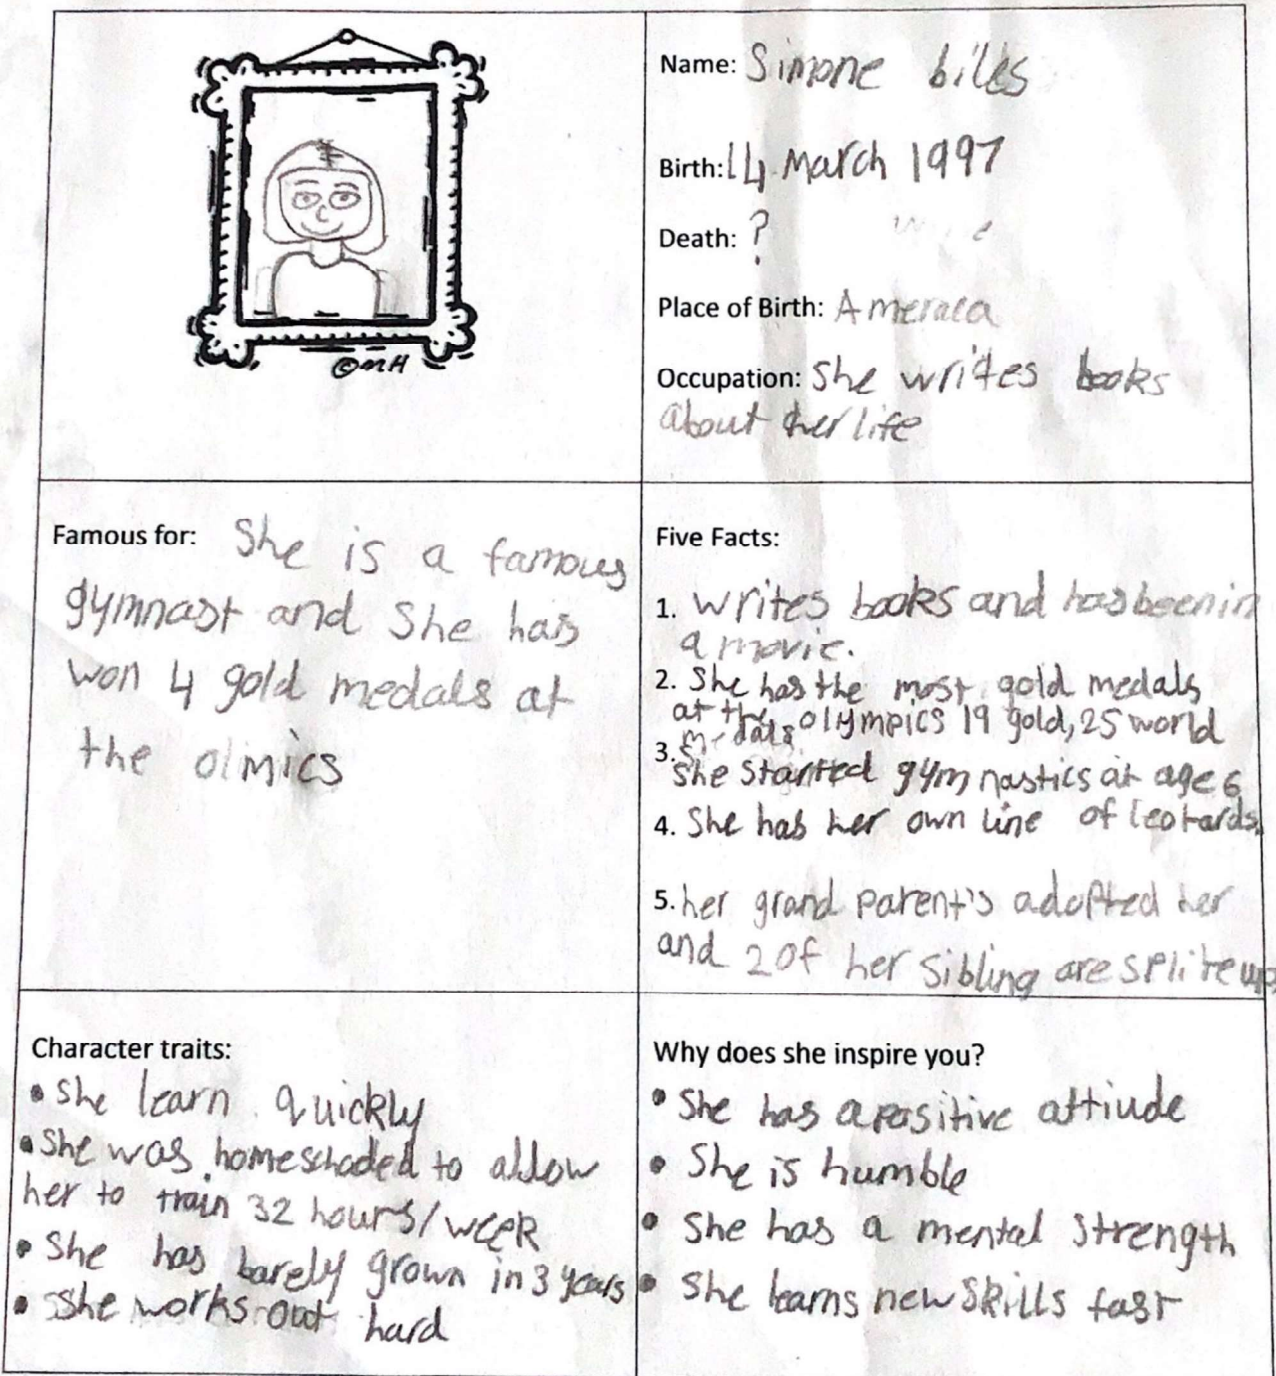 ©MH
Name: Simone biles
Birth: 14 March 1997
Death: ?
Place of Birth: Ameraca
Occupation: She writes books
about her life
Famous for: She is a famous
gymnast and She has
won 4 gold medals at
the olmics
Five Facts:
1. writes books and has been in
a movie.
2. She has the most gold medals
at the olympics 19 gold, 25 world
medals
3. She started gymnastics at age 6
4. She has her own line of leotards.
5. her grand parent's adopted her
and 2 of her sibling are splite up
Character traits:
• She learn quickly
• She was homeschooled to allow
her to train 32 hours/week
• She has barely grown in 3 years
• She works out hard
Why does she inspire you?
• She has a positive attiude
• She is humble
• She has a mental strength
• She learns new skills fast